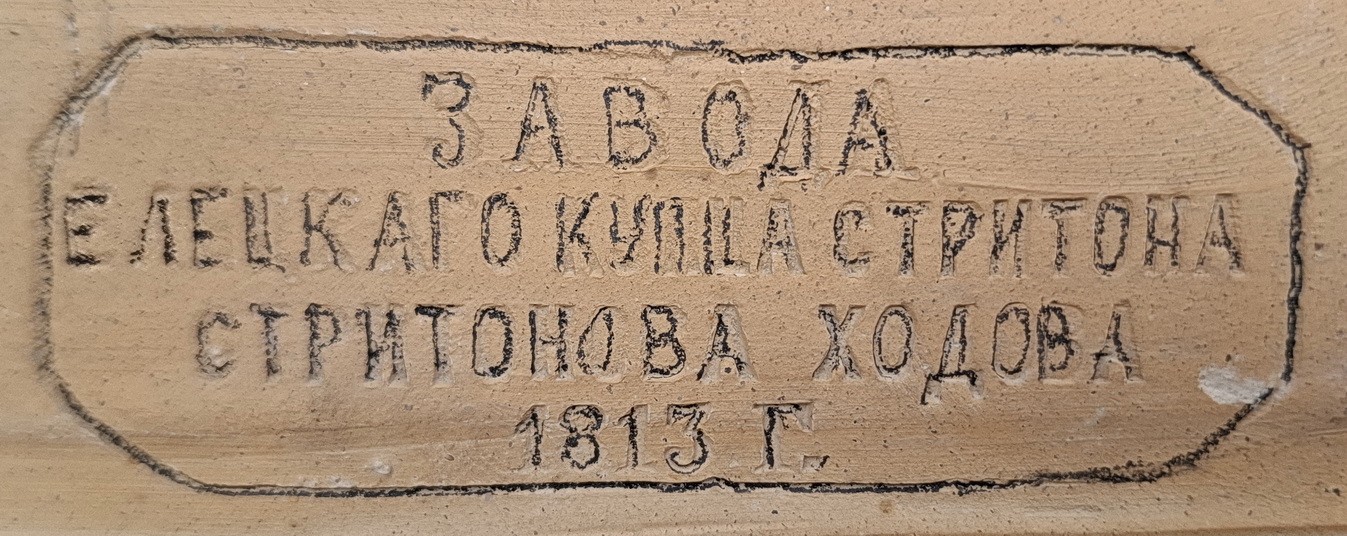 ЗАВОДА
ЕЛЕЦКАГО КУПЦА СТРИТОНА
СТРИТОНОВА ХОДОВА
1813 Г.